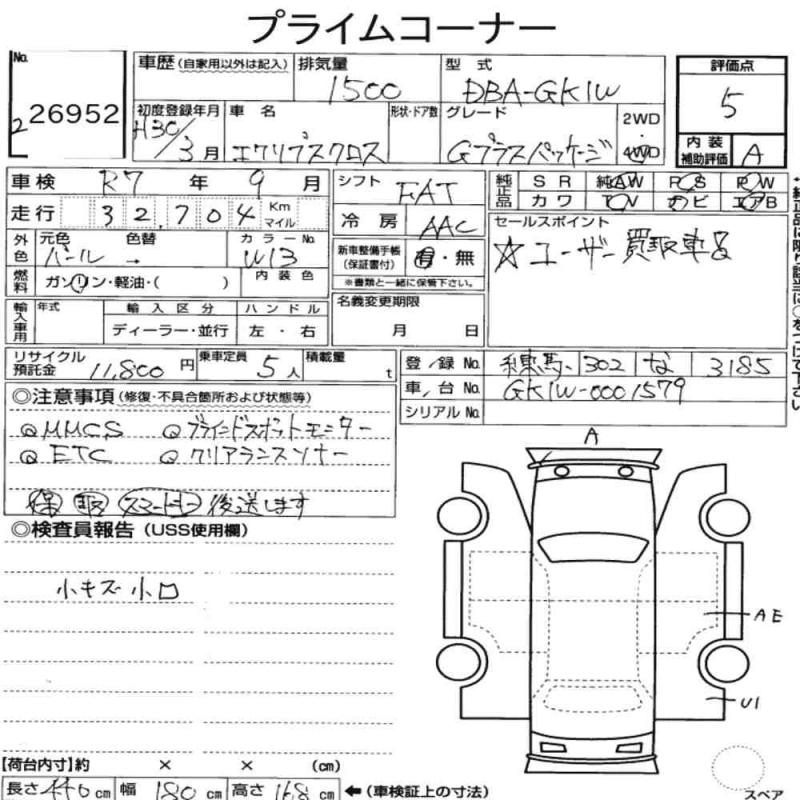 プライムコーナー
No. 26952
2
車歴 (自家用以外は記入)
排気量 1500
型式 DBA-GK1W
評価点 5
初度登録年月 H30/3月
車名 エクリプスクロス
形状・ドア数
グレード Gプラスパッケージ
2WD
4WD
内装補助評価 A
車検 R7年 9月
シフト FAT
純正品 SR 純AW PS PW
カワ TV ナビ エアB
走行 32,704 Km マイル
冷房 AAC
セールスポイント
☆ユーザー買取車
外色 元色 パール 色替 → カラーNo. W13
新車整備手帳 (保証書付) 有・無
※書類と一緒に保管下さい。
燃料 ガソリン・軽油・( ) 内装色
輸入車用 年式 輸入区分 ハンドル
ディーラー・並行 左・右
名義変更期限
月 日
リサイクル預託金 11,800円 乗車定員 5人 積載量 t
登録No. 練馬 302 な 3185
車台No. GK1W-0001579
シリアルNo.
◎注意事項 (修復・不具合箇所および状態等)
MMCS ブラインドスポットモニター
ETC クリアランスソナー
保 取 スマートキー 後送します
◎検査員報告 (USS使用欄)
小キズ 小凹
A
AE
U1
スペア
【荷台内寸】約 × × (cm)
長さ 440cm 幅 180cm 高さ 168cm ←(車検証上の寸法)